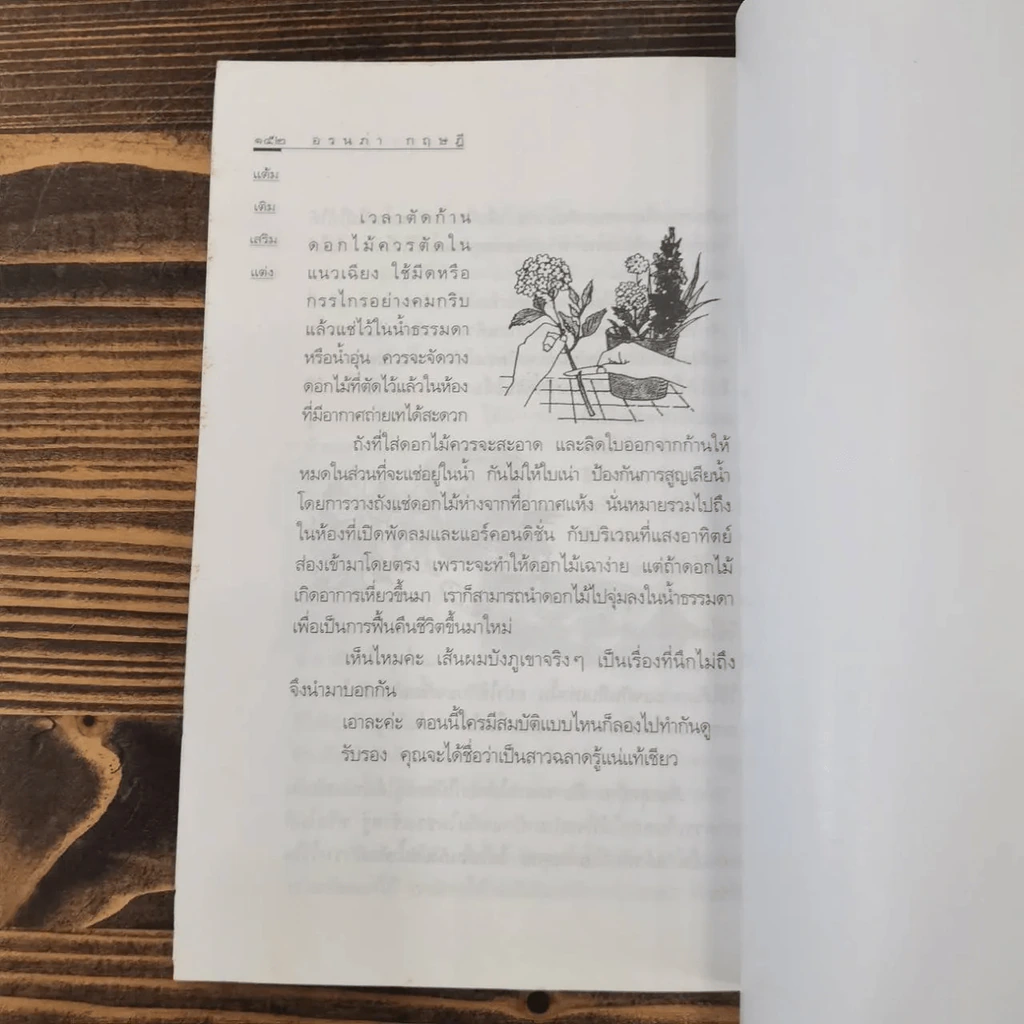 ๑๕๒ อรนภา กฤษฎี
แต้ม
เติม
เสริม
แต่ง
เวลาตัดก้าน
ดอกไม้ควรตัดใน
แนวเฉียง ใช้มีดหรือ
กรรไกรอย่างคมกริบ
แล้วแช่ไว้ในน้ำธรรมดา
หรือน้ำอุ่น ควรจะจัดวาง
ดอกไม้ที่ตัดไว้แล้วในห้อง
ที่มีอากาศถ่ายเทได้สะดวก
ถังที่ใส่ดอกไม้ควรจะสะอาด และลิดใบออกจากก้านให้
หมดในส่วนที่จะแช่อยู่ในน้ำ กันไม่ให้ใบเน่า ป้องกันการสูญเสียน้ำ
โดยการวางถังแช่ดอกไม้ห่างจากที่อากาศแห้ง นั่นหมายรวมไปถึง
ในห้องที่เปิดพัดลมและแอร์คอนดิชั่น กับบริเวณที่แสงอาทิตย์
ส่องเข้ามาโดยตรง เพราะจะทำให้ดอกไม้เฉาง่าย แต่ถ้าดอกไม้
เกิดอาการเหี่ยวขึ้นมา เราก็สามารถนำดอกไม้ไปจุ่มลงในน้ำธรรมดา
เพื่อเป็นการฟื้นคืนชีวิตขึ้นมาใหม่
เห็นไหมคะ เส้นผมบังภูเขาจริงๆ เป็นเรื่องที่นึกไม่ถึง
จึงนำมาบอกกัน
เอาละค่ะ ตอนนี้ใครมีสมบัติแบบไหนก็ลองไปทำกันดู
รับรอง คุณจะได้ชื่อว่าเป็นสาวฉลาดรู้แน่แท้เชียว